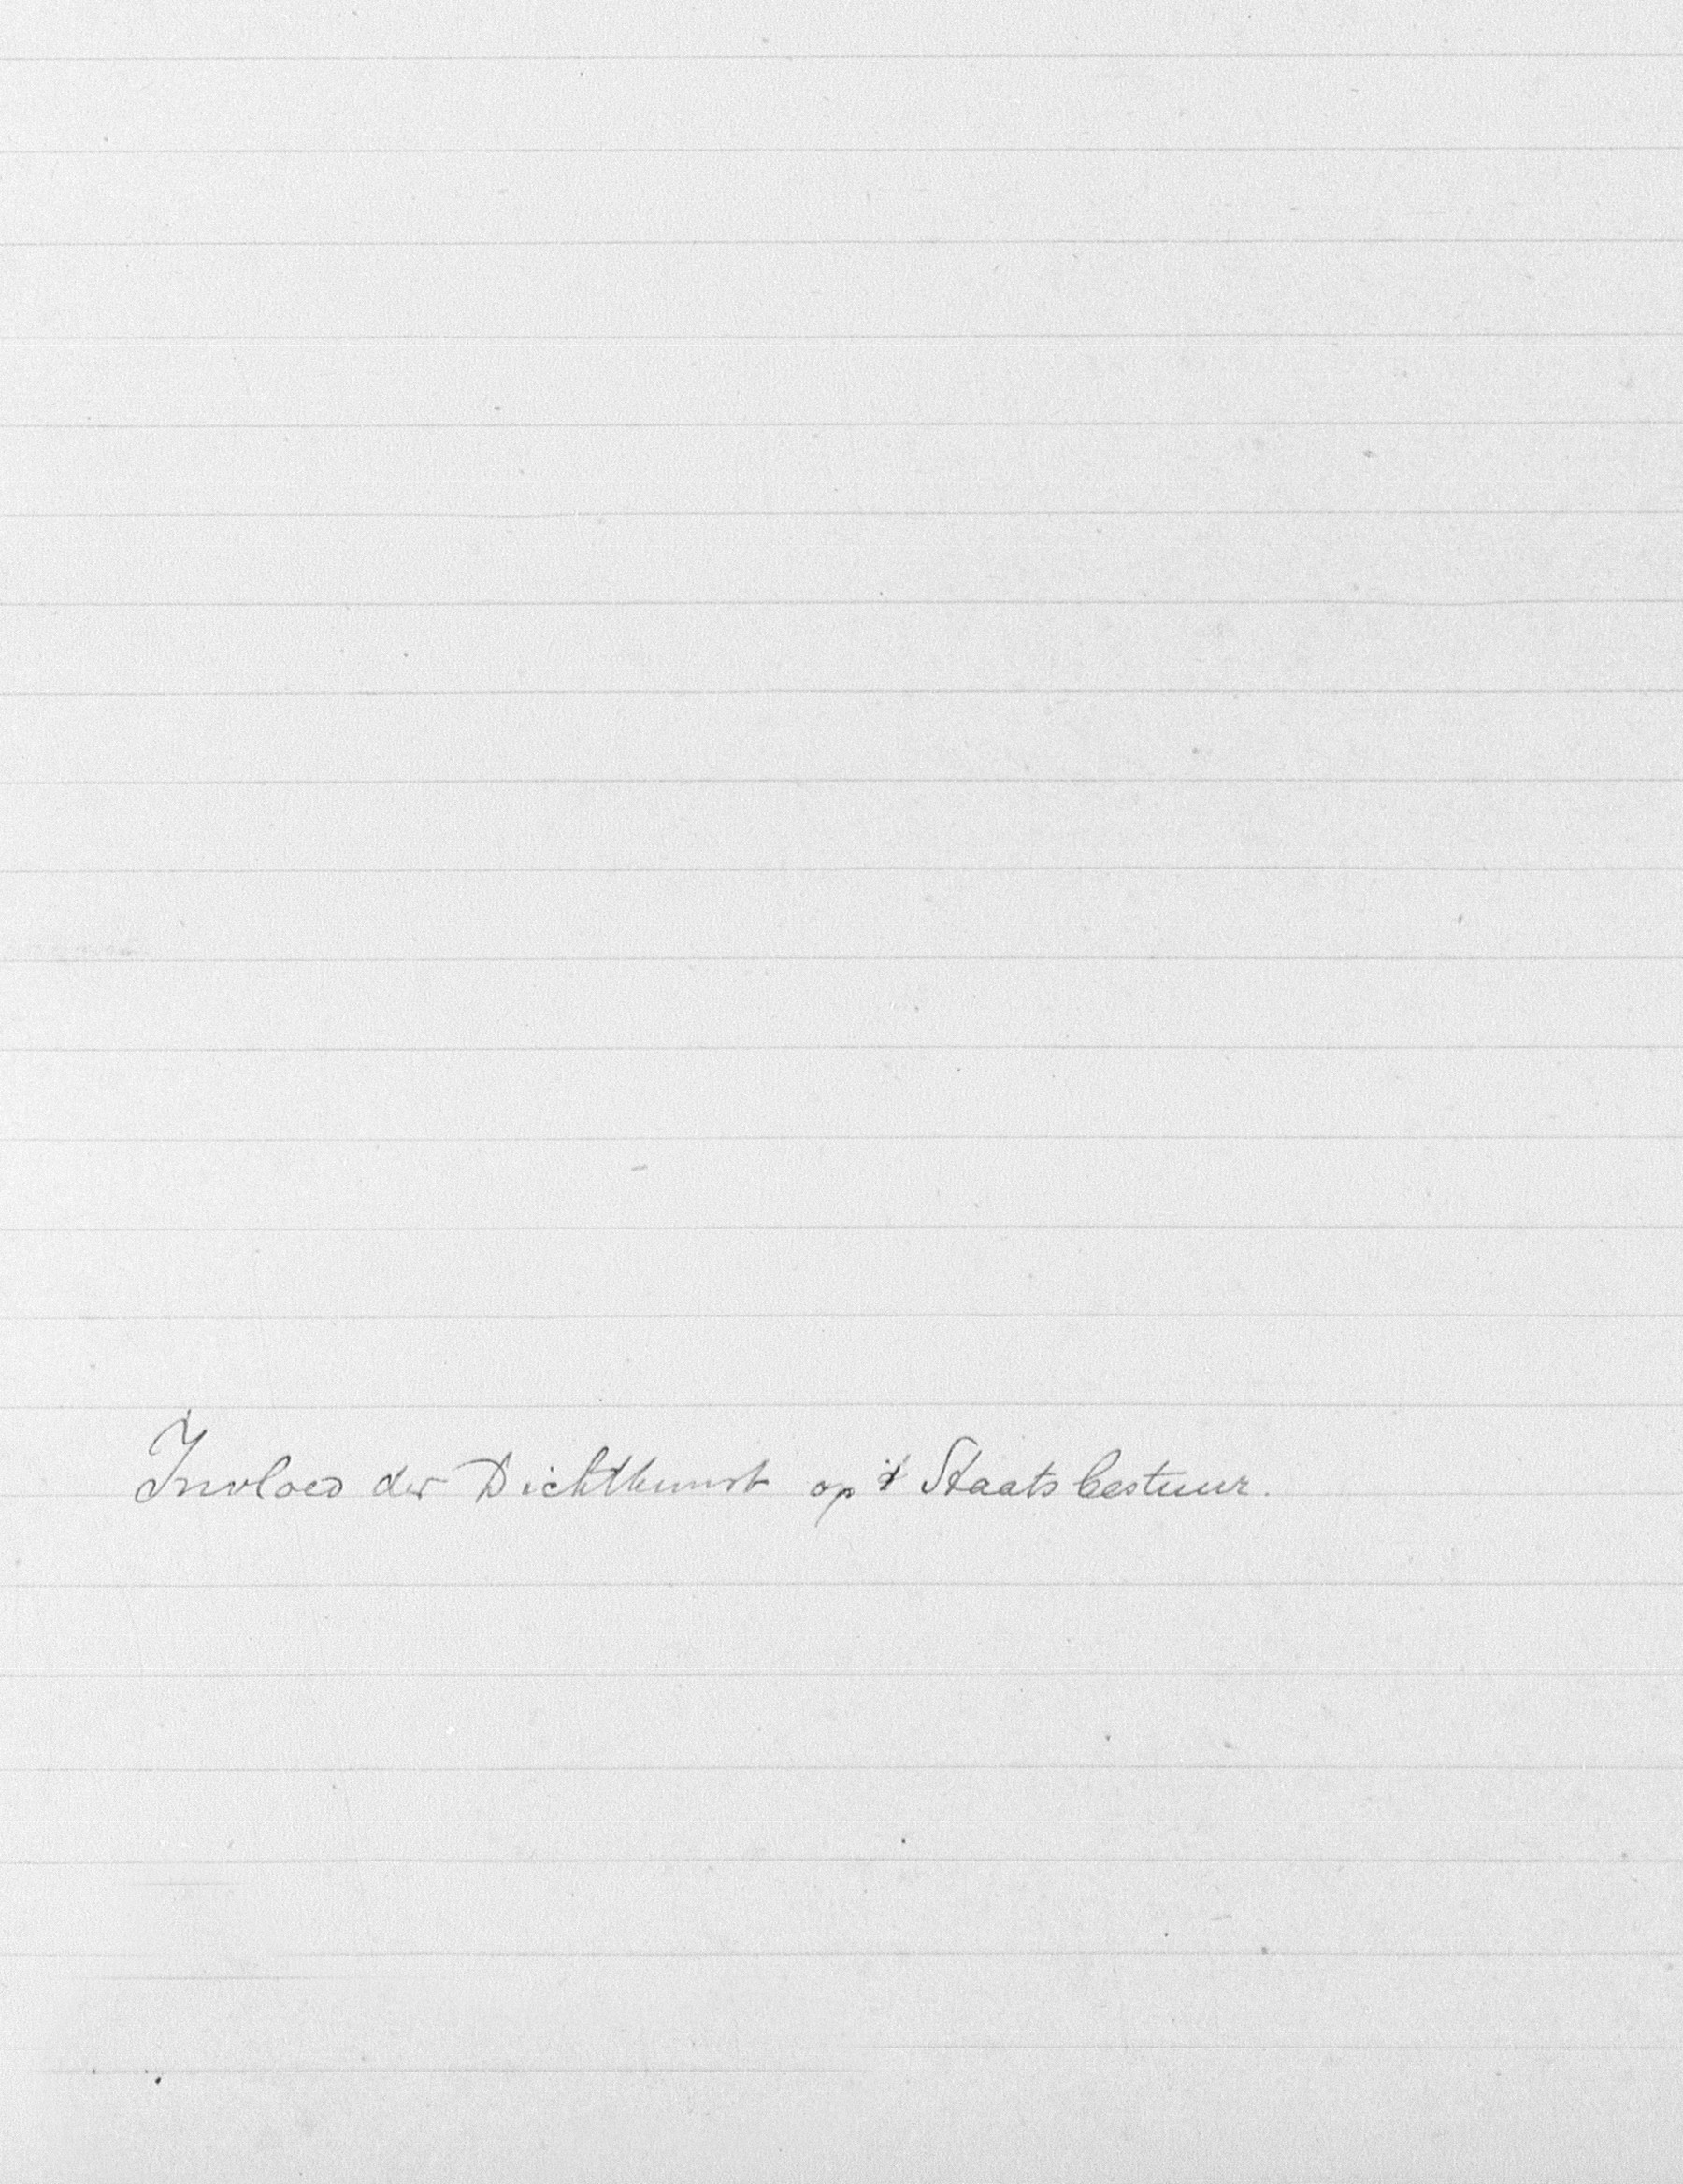 Invloed der Dichtkunst op 't Staatsbestuur.